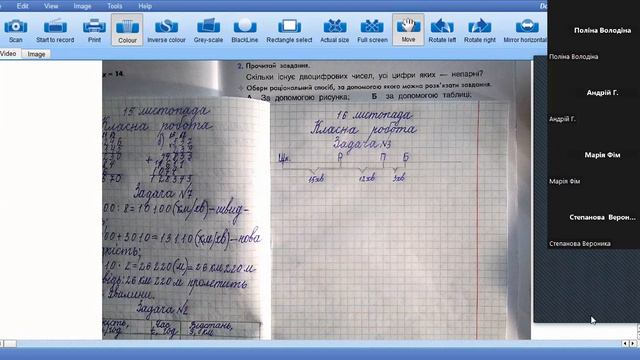 Scan
Start to record
Print
Colour
Inverse colour
Grey-scale
BlackLine
Rectangle select
Actual size
Full screen
Move
Rotate left
Rotate right
Mirror horizontal
Video
Image
x = 14.
2. Прочитай завдання.
Скільки існує двоцифрових чисел, усі цифри яких — непарні?
Обери раціональний спосіб, за допомогою якого можна розв'язати завдання.
А За допомогою рисунка; Б за допомогою таблиці;
15 листопада
Класна робота
Задача №7
00 · 8 = 10 100 (км/хв) – швид-
00 + 3010 = 13 110 (км/хв) – нова
10 · 2 = 26 220 (м) = 26 км 220 м
26 км 220 м пролетить
хвилини.
Задача №2
16 листопада
Класна робота
Задача №3
Шк. Р П Б
15хв 12хв 3хв
Поліна Володіна
Поліна Володіна
Андрій Г.
Андрій Г.
Марія Фім
Марія Фім
Степанова Верон...
Степанова Вероника